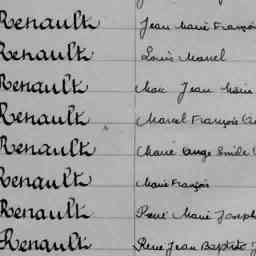 Renault Jean Marie François
Renault Louis Marcel
Renault Marc Jean Marie
Renault Marcel François
Renault Marie Ange Emile
Renault Marie François
Renault René Marie Joseph
Renault René Jean Baptiste